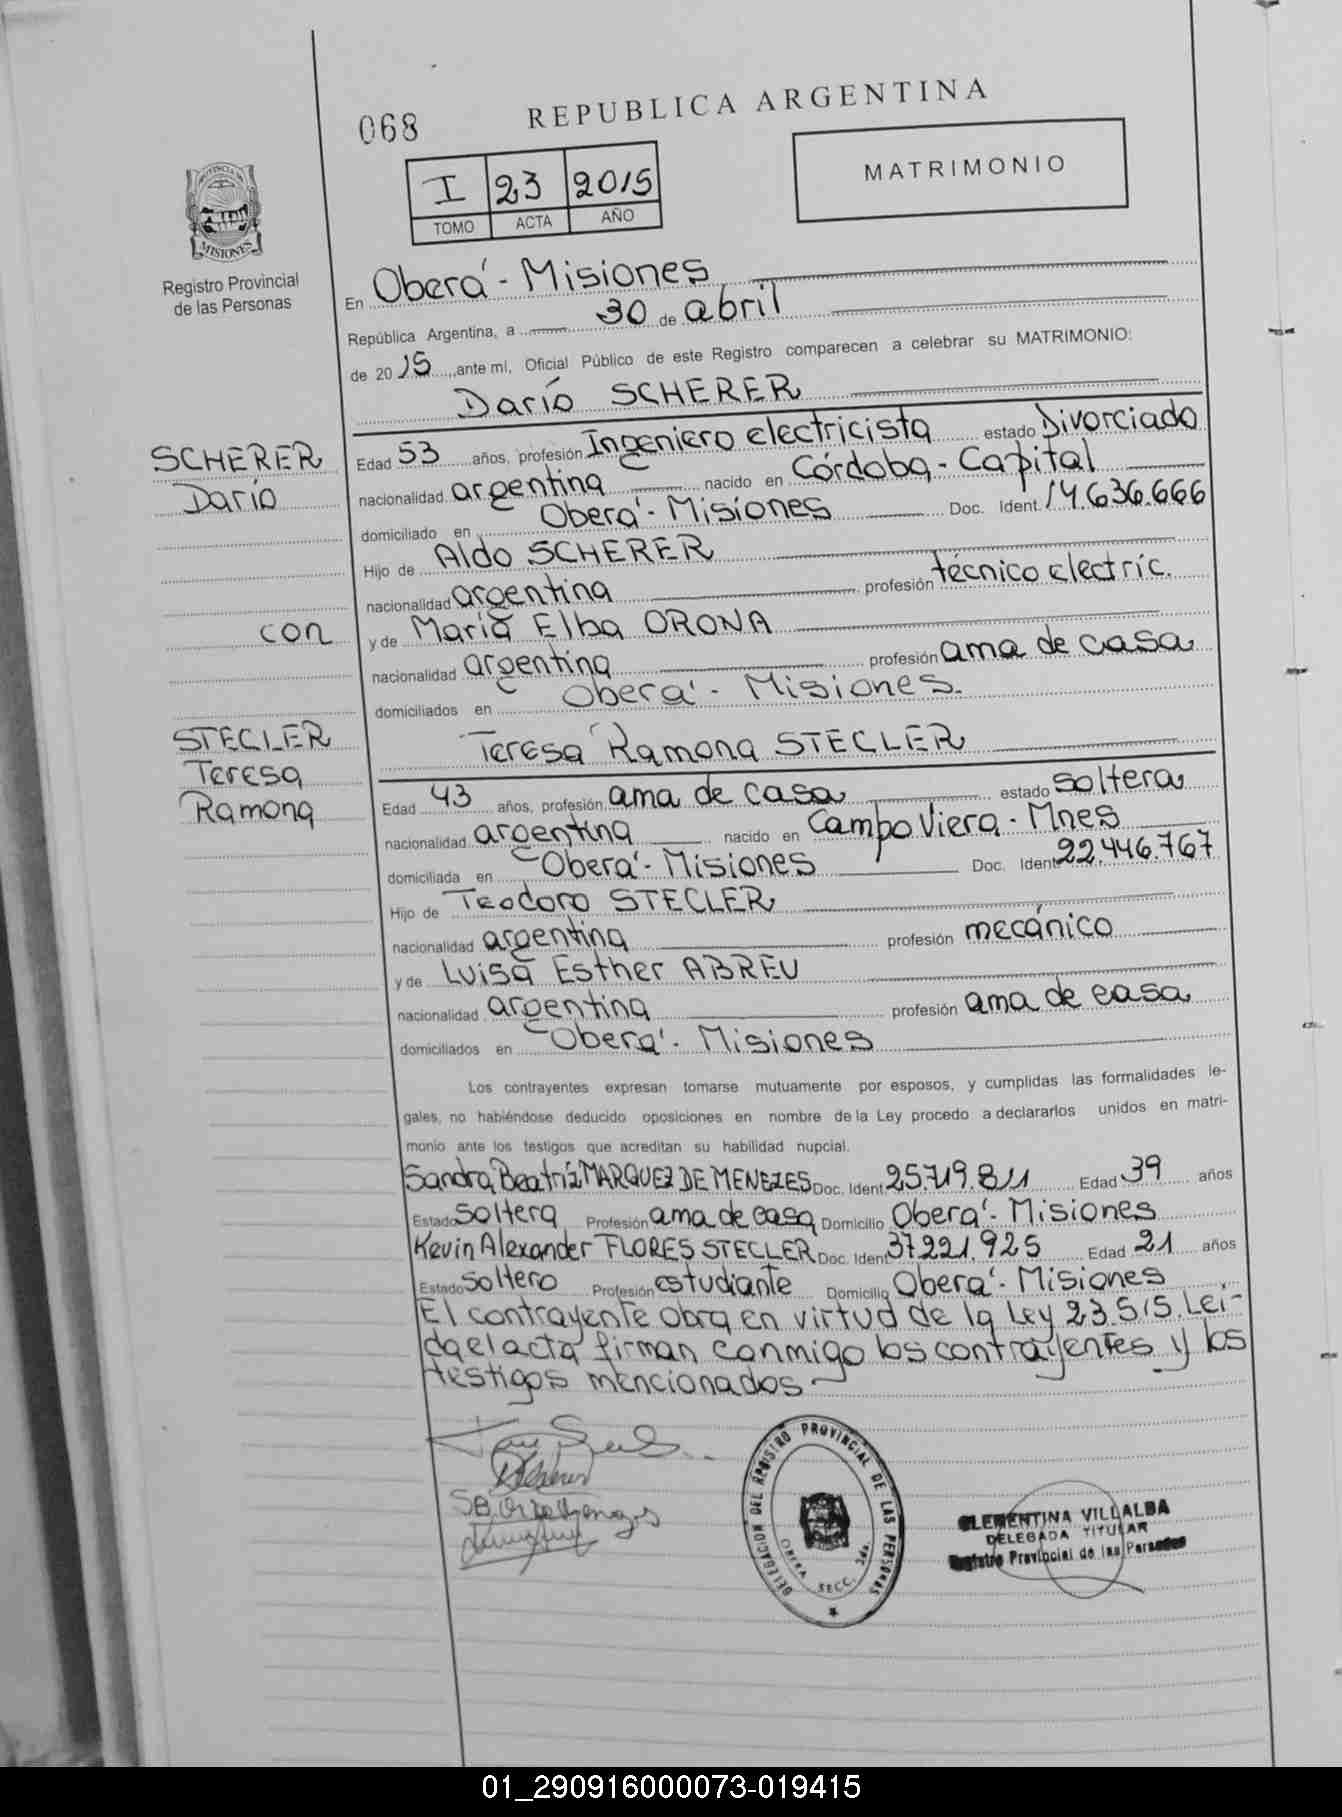 068
REPUBLICA ARGENTINA
MATRIMONIO
I 23 2015
TOMO ACTA AÑO
PROVINCIA DE
MISIONES
Registro Provincial
de las Personas
En Oberá - Misiones
República Argentina, a 30 de abril
de 2015, ante mí, Oficial Público de este Registro comparecen a celebrar su MATRIMONIO:
Darío SCHERER
SCHERER
Darío
con
STECLER
Teresa
Ramona
Edad 53 años, profesión Ingeniero electricista estado Divorciado
nacionalidad argentina nacido en Córdoba - Capital
domiciliado en Oberá - Misiones Doc. Ident. 14.636.666
Hijo de Aldo SCHERER
nacionalidad argentina profesión técnico electric.
y de María Elba ORONA
nacionalidad argentina profesión ama de casa
domiciliados en Oberá - Misiones.
Teresa Ramona STECLER
Edad 43 años, profesión, ama de casa estado soltera
nacionalidad argentina nacido en Campo Viera - Mnes
domiciliada en Oberá - Misiones Doc. Ident. 22.446.767
Hijo de Teodoro STECLER
nacionalidad argentina profesión mecánico
y de Luisa Esther ABREU
nacionalidad argentina profesión ama de casa
domiciliados en Oberá - Misiones
Los contrayentes expresan tomarse mutuamente por esposos, y cumplidas las formalidades le-
gales, no habiéndose deducido oposiciones en nombre de la Ley procedo a declararlos unidos en matri-
monio ante los testigos que acreditan su habilidad nupcial.
Sandra Beatriz MARQUEZ DE MENEZES Doc. Ident. 25.719.811 Edad 39 años
Estado soltera Profesión ama de casa Domicilio Oberá - Misiones
Kevin Alexander FLORES STECLER Doc. Ident. 37.221.925 Edad 21 años
Estado soltero Profesión estudiante Domicilio Oberá - Misiones
El contrayente obra en virtud de la Ley 23.515. Lei-
da el acta firman conmigo los contrayentes y los
testigos mencionados
DELEGACION DEL REGISTRO PROVINCIAL DE LAS PERSONAS
OBERA SECC. 2da.
CLEMENTINA VILLALBA
DELEGADA TITULAR
Registro Provincial de las Personas
01_290916000073-019415